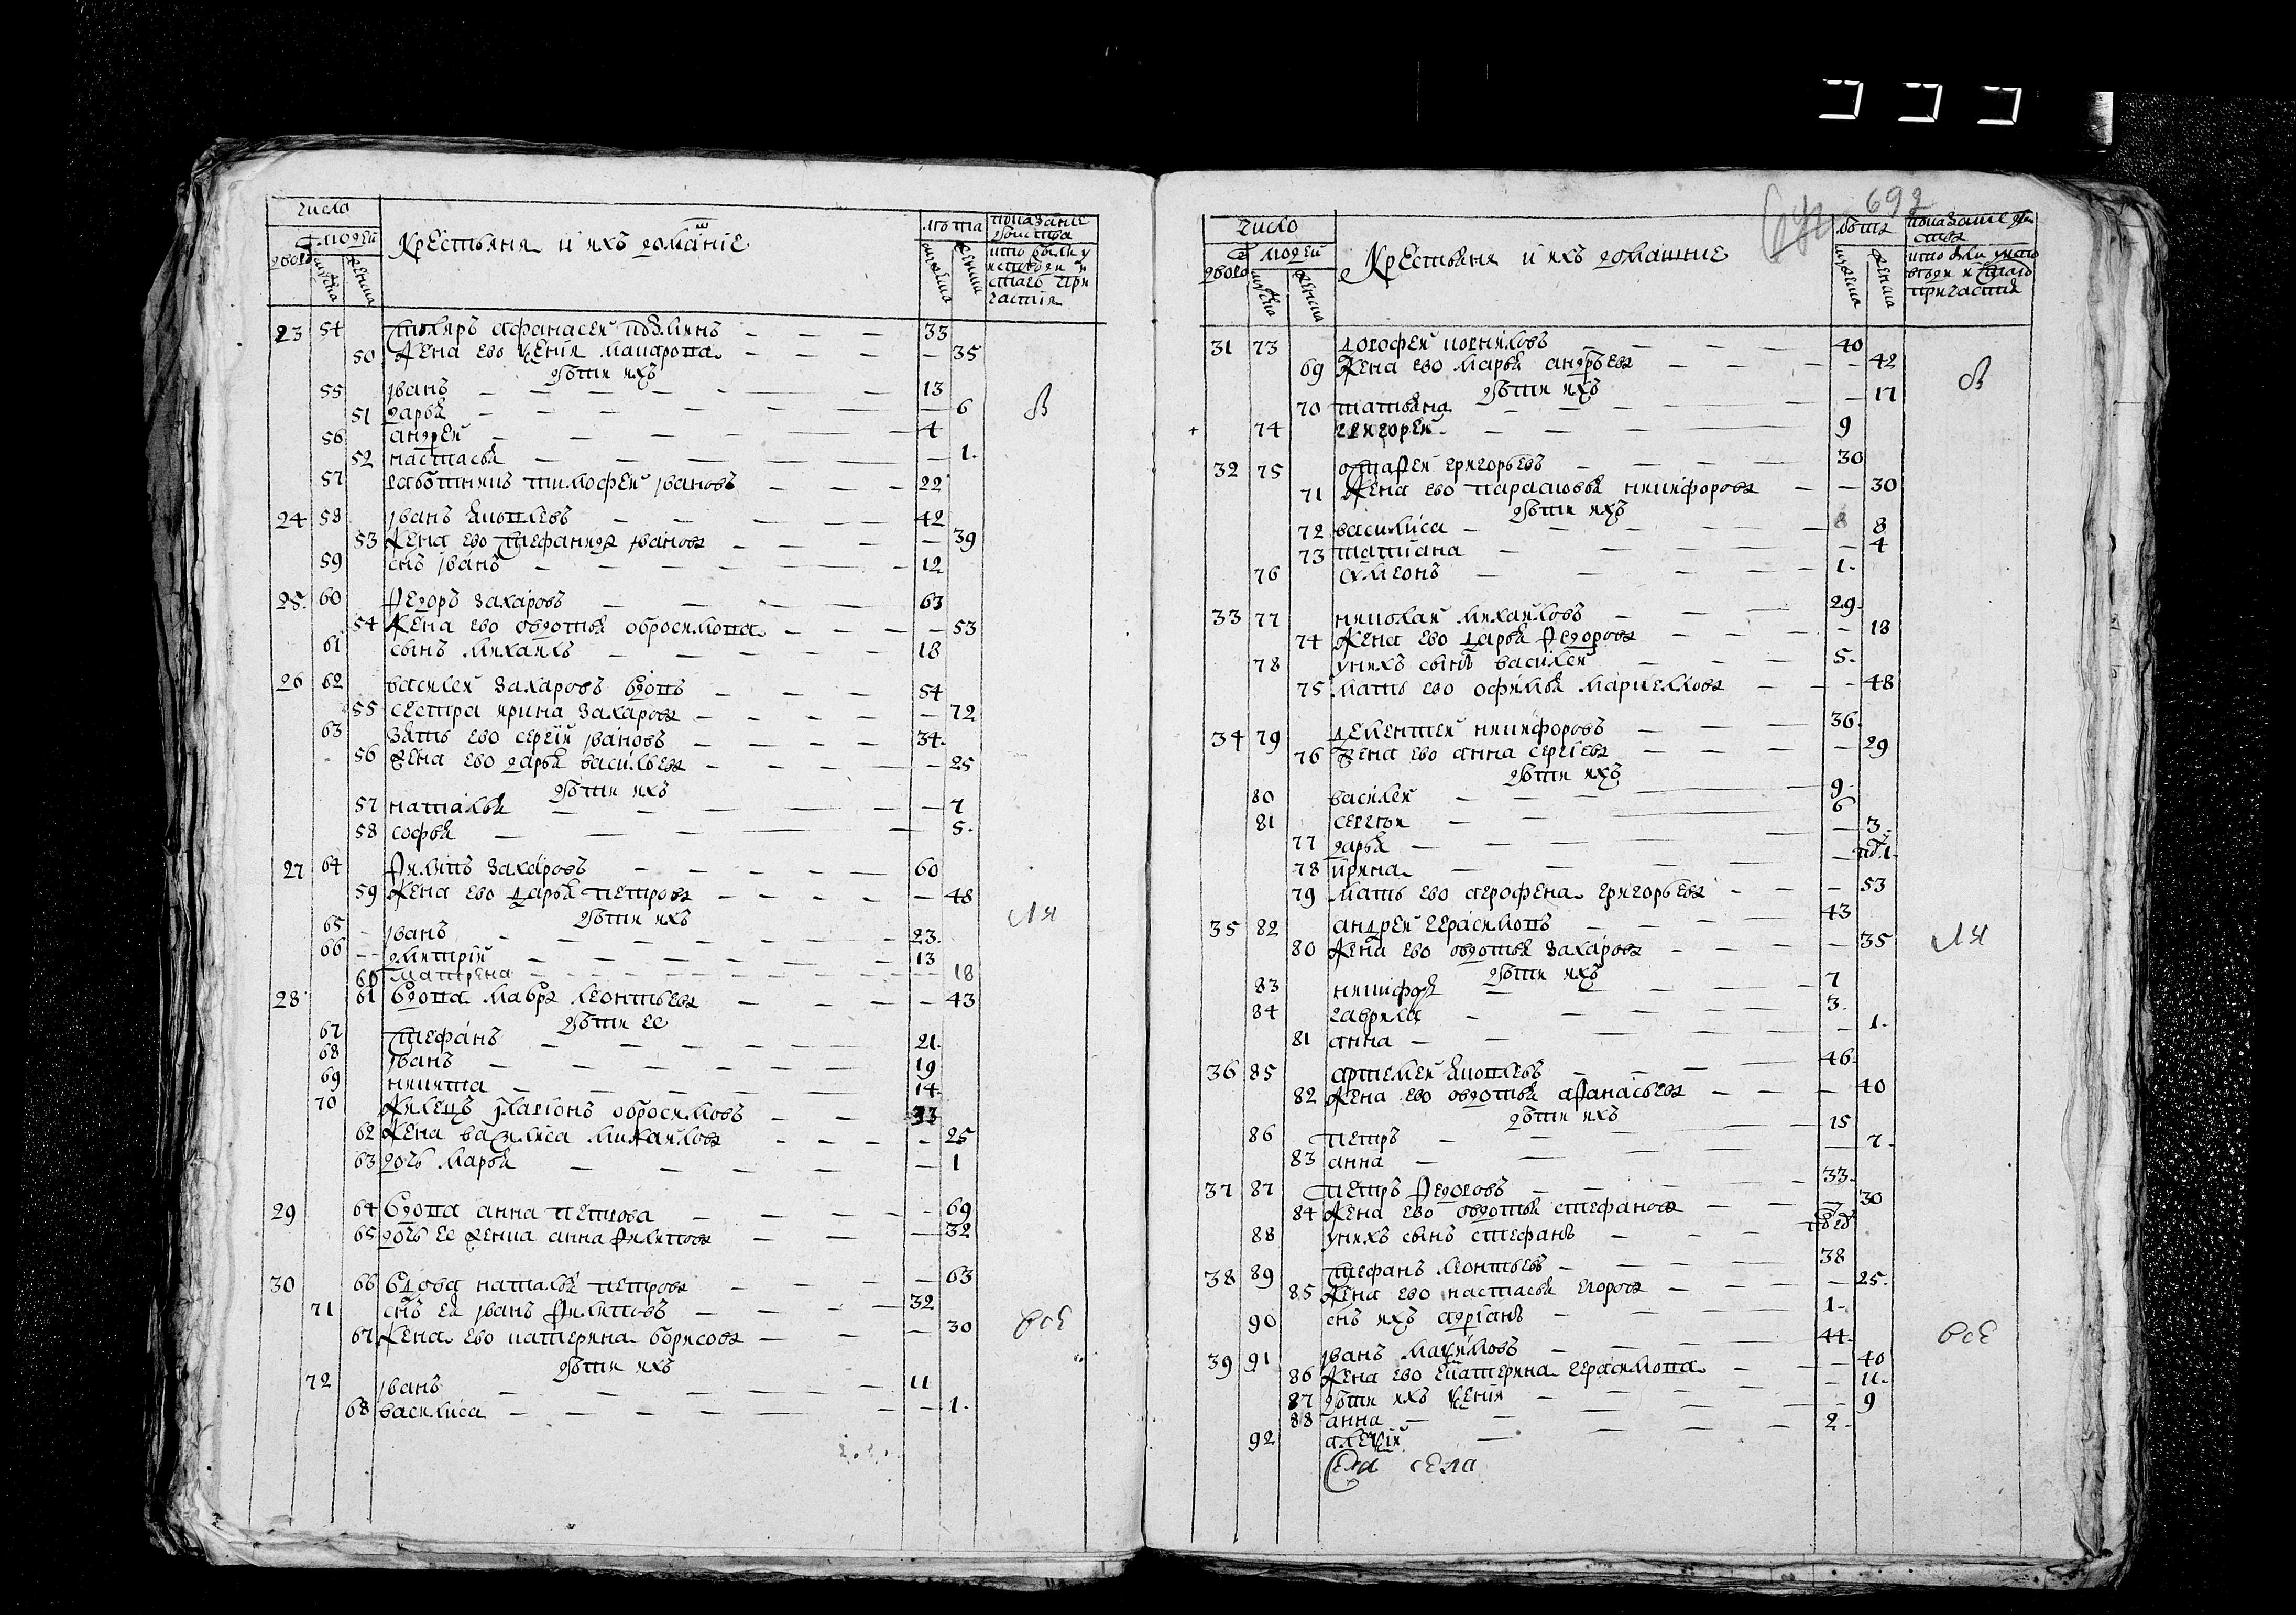 число
дворо людей
мужска женска
Крестьяня и ихъ домашніе
лѣта
мужеска женска
показаніе действа
кто были у исповеди и святаго причастия
23 54 Питиръ Афанасеи 33
50 Жена ево Ксения 35
дѣти ихъ
55 Іванъ 13
51 Дарья 6
56 андреи 4
52 настасья 1.
57 работникъ тимофеи Івановъ 22
24 58 Іванъ Яковлевъ 42
53 Жена ево Стефанида Іванова 39
59 снъ Іванъ 12
25. 60 Федоръ Захаровъ 63
54 Жена ево овдотья обросимова 53
61 сынъ михаилъ 18
26 62 василеи Захаровъ вдовъ 54
55 сестра ирина Захарова 72
63 Зять ево сергіи Івановъ 34.
56 Жена ево дарья васильева 25
дѣти ихъ
57 наталья 7
58 софья 5.
27 64 Филипъ Захаровъ 60
59 Жена ево дарья петрова 48
дѣти ихъ
65 Іванъ 23.
66 дмитріи 13
60 матрена 18
28 61 вдова мавра леонтьева 43
дѣти ее
67 Стефанъ 21.
68 Іванъ 19
69 никита 14.
70 Жилецъ Іларіонъ обросимовъ 33
62 Жена василиса михаилова 25
63 дочь марья 1
29 64 вдова анна петрова 69
65 дочь ее женка анна Филипова 32
30 66 вдова наталья петрова 63
71 снъ ея Іванъ Филиповъ 32
67 Жена ево катерина борисова 30
дѣти ихъ
72 Іванъ 11
68 василиса 1.
В
ли
всѣ
692
число
дворо людей
мужска женска
Крестьяня и ихъ домашние
лѣта
мужеска женска
показание действа
кто были у исповеди и святаго причастия
31 73 дорофеи 40
69 Жена ево марья андрѣева 42
дѣти ихъ
70 татьяна 17
+ 74 григореи 9
32 75 остафеи григорьевъ 30
71 Жена ево парасковья никифорова 30
дѣти ихъ
72 василиса 8 8
73 татиана 4
76 сѵмеонъ 1.
33 77 николаи михаиловъ 29.
74 Жена ево дарья Федорова 18
78 уихъ сынъ василеи 5.
75 мать ево офимья маркеллова 48
34 79 дементеи никифоровъ 36.
76 Жена ево анна сергіева 29
дѣти ихъ
80 василеи 9.
81 сергѣи 6
77 дарья 3.
78 ирина
79 мать ево агрофена григорьева 53
35 82 андреи герасимовъ 43
80 Жена ево овдотья Захарова 35
дѣти ихъ
83 никифоръ 7
84 гаврила 3.
81 анна 1.
36 85 артемеи Яковлевъ 46.
82 Жена ево овдотья афанасьева 40
дѣти ихъ
86 петръ 15
83 анна 7.
37 87 петръ Федоровъ 33.
84 Жена ево овдотья стефанова 30
88 унихъ сынъ стефанъ
38 89 Стефанъ леонтьевъ 38
85 Жена ево настасья егорова 25.
90 снъ ихъ адріанъ 1.
39 91 Іванъ маѯимовъ 44.
86 Жена ево екатерина герасимова 40
87 дѣти ихъ ѯения 11.
88 анна 9
92 алеѯіи 2.
села
В
ли
всѣ